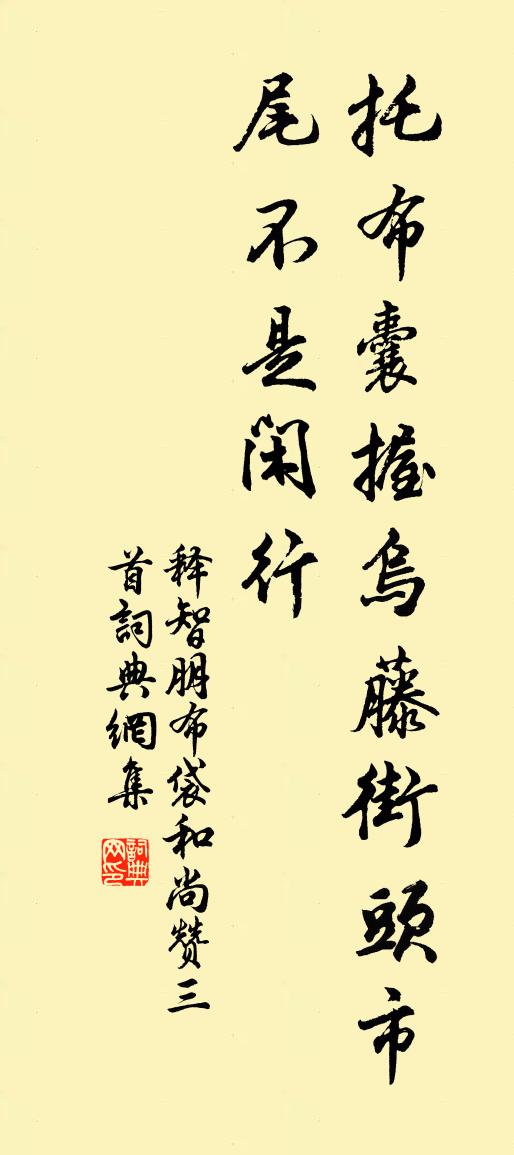 托布囊握烏藤街頭市
尾不是闲行
释智朋布袋和尚赞三
首詞典網集
詞典
网印